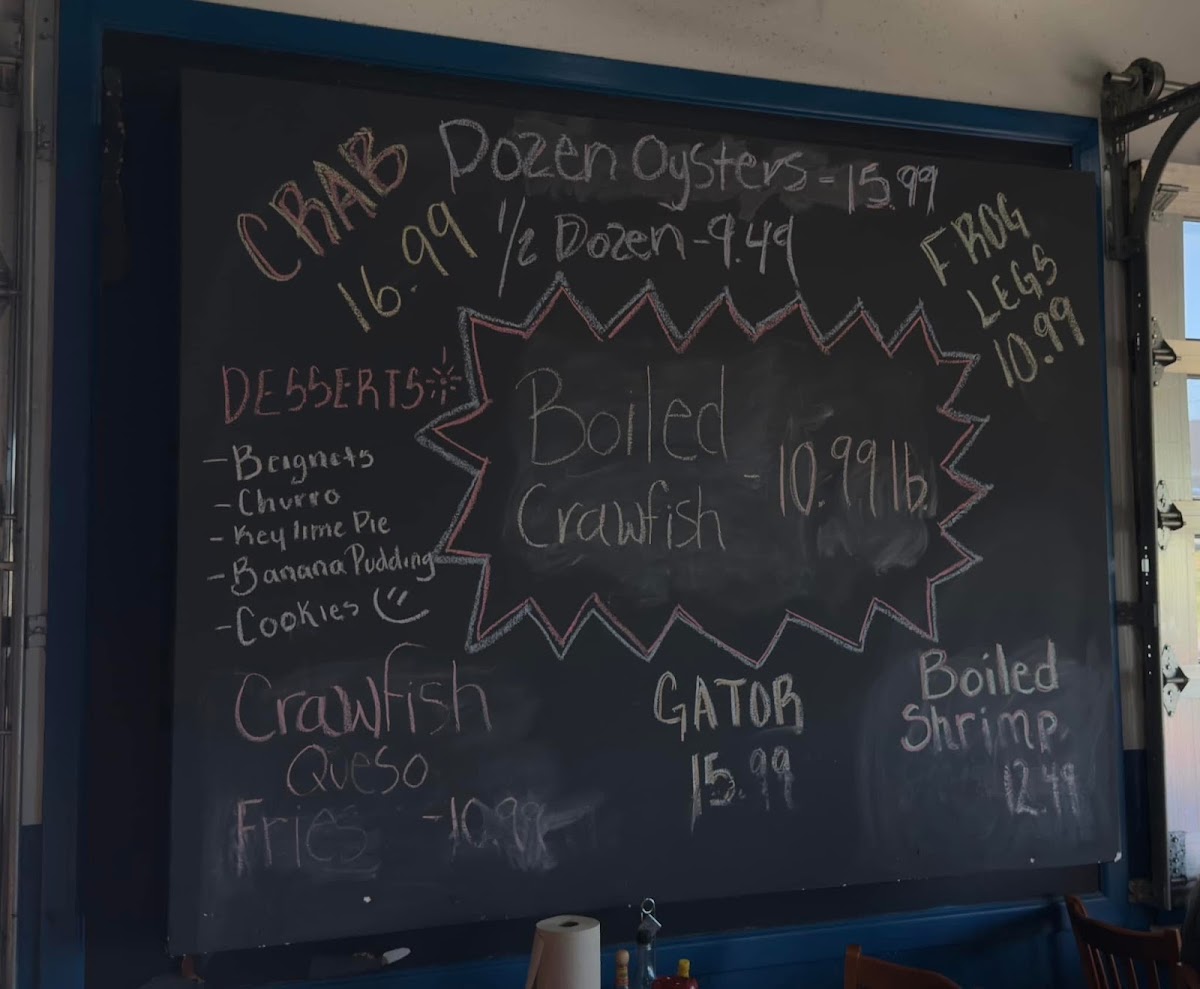 CRAB
16.99
Dozen Oysters - 15.99
1/2 Dozen - 9.49
FROG
LEGS
10.99
DESSERTS
- Beignets
- Churro
- Key lime Pie
- Banana Pudding
- Cookies
Boiled
Crawfish - 10.99 lb.
Crawfish
Queso
Fries - 10.99
GATOR
15.99
Boiled
Shrimp
12.49